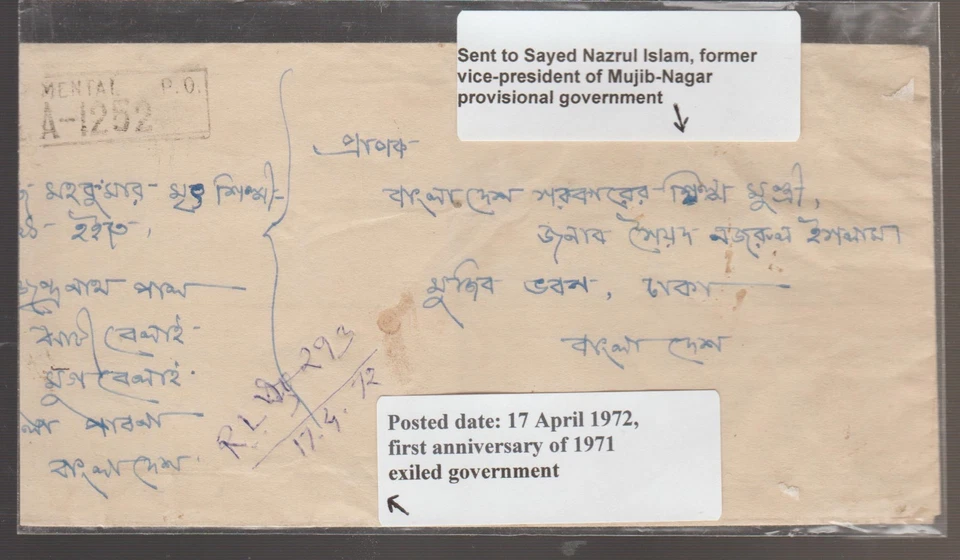 Sent to Sayed Nazrul Islam, former
vice-president of Mujib-Nagar
provisional government
MENTAL P.O.
A-1252
প্রাপক
বাংলা দেশ সরকারের শিল্প মন্ত্রী,
জনাব সৈয়দ নজরুল ইসলাম।
মুজিব ভবন, ঢাকা
বাংলা দেশ
মহকুমার মৃৎ শিল্পী-
হইতে,
নাথ পাল
বেলাই
বেলাই
পাবনা
বাংলা দেশ
R.L. 293
17.4.72
Posted date: 17 April 1972,
first anniversary of 1971
exiled government